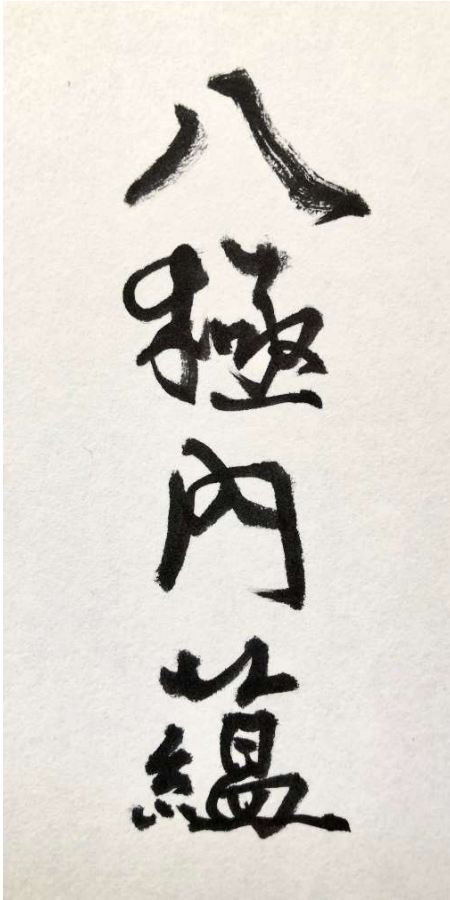 八極內蘊